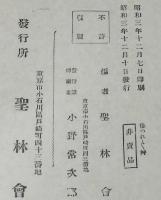 昭和三年十二月七日印刷
昭和三年十二月十日發行
非賣品
不許
複製
編者 聖林會
東京市小石川區戶崎町四十三番地
小野常次郎
東京市小石川區戶崎町四十三番地
發行所 聖林會